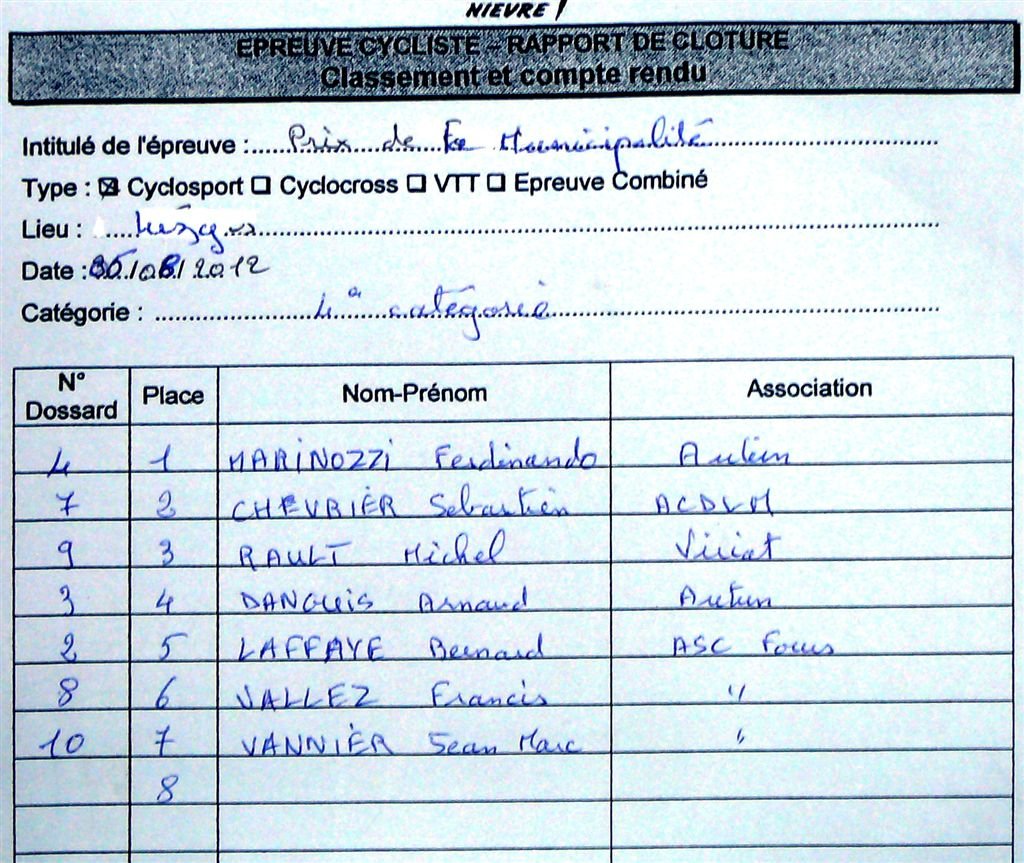 NIEVRE
EPREUVE CYCLISTE – RAPPORT DE CLOTURE
Classement et compte rendu
Intitulé de l'épreuve : Prix de la Municipalité
Type : ☒ Cyclosport ☐ Cyclocross ☐ VTT ☐ Epreuve Combiné
Lieu :
Date : /08/2012
Catégorie : 4e catégorie
N° Dossard Place Nom-Prénom Association
4 1 MARINOZZI Ferdinando Autun
7 2 CHEVRIER Sebastien ACDLM
9 3 RAULT Michel
3 4 DANGUIS Arnaud Autun
2 5 LAFFAYE Bernard ASC Focus
8 6 VALLEZ Francis "
10 7 VANNIER Jean Marc "
8